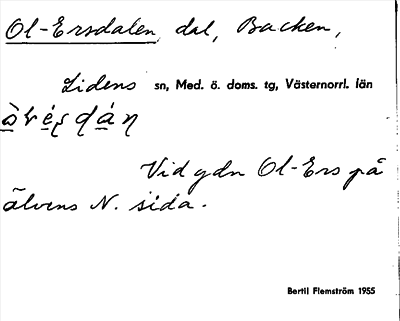 Ol-Ersdalen, dal, Backen,
Lidens sn, Med. ö. doms. tg, Västernorrl. län
Vid gdn Ol-Ers på
älvens N. sida.
Bertil Flemström 1955